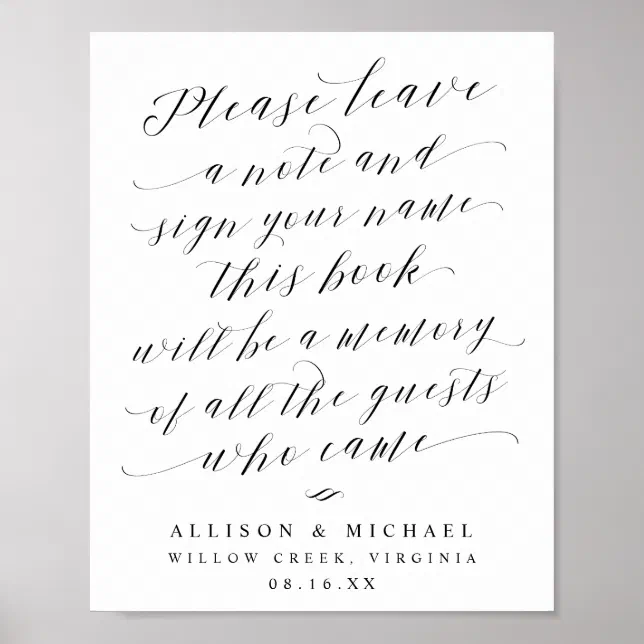 Please leave
a note and
sign your name
this book
will be a memory
of all the guests
who came
ALLISON & MICHAEL
WILLOW CREEK, VIRGINIA
08.16.XX